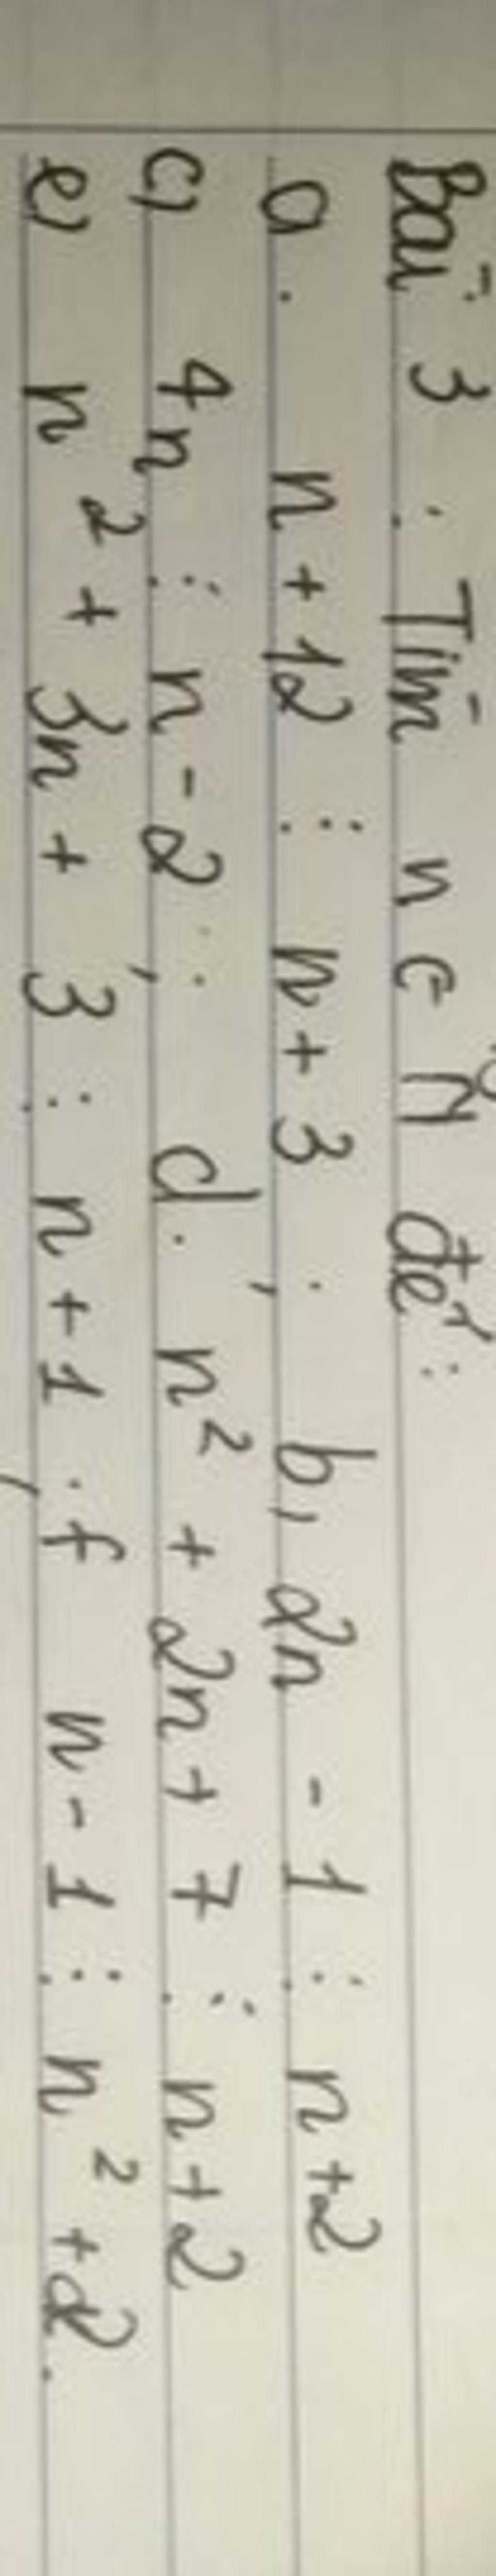 Bài 3 : Tìm n ∈ N để :
a. n + 12 ⋮ n + 3 ; b, 2n - 1 ⋮ n + 2
c, 4n ⋮ n - 2 ; d. n² + 2n + 7 ⋮ n + 2
e, n² + 3n + 3 ⋮ n + 1 ; f n - 1 ⋮ n² + 2.